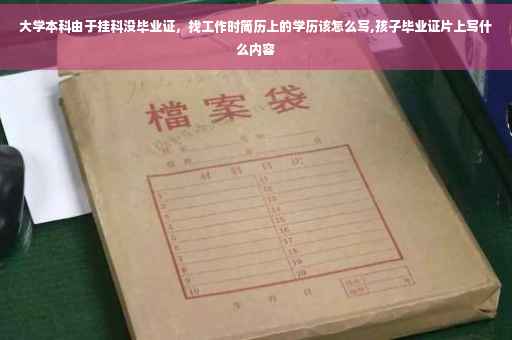 大学本科由于挂科没毕业证，找工作时简历上的学历该怎么写,孩子毕业证片上写什
么内容
檔案袋
材料目次
1
2
3
4
5
6
7
8
9
10
11
12
13
14
15
16
17
18
19
20
年 月 日